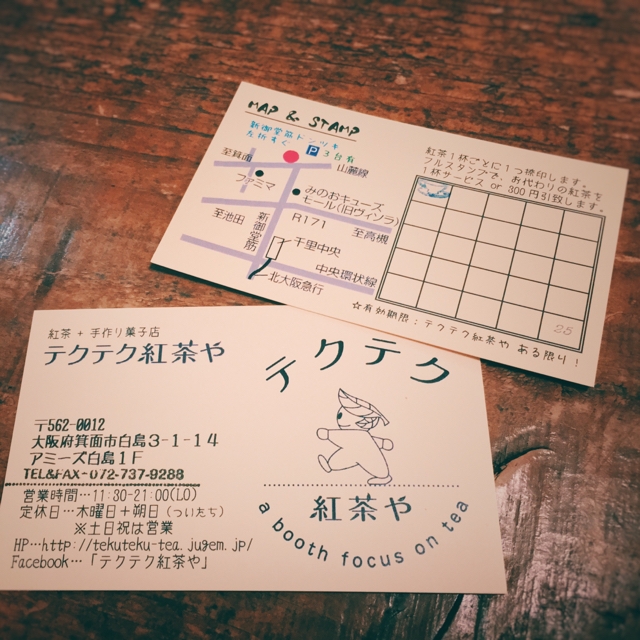 MAP & STAMP
新御堂筋ドンツキ
左折すぐ
P 3台有
至箕面
山麓線
ファミマ
みのおキューズ
モール(旧ヴィソラ)
至池田
新御堂筋
R171
至高槻
千里中央
中央環状線
北大阪急行
紅茶1杯ごとに1つ捺印します。
フルスタンプで、お代わりの紅茶を
1杯サービス or 300円引致します。
25
☆有効期限:テクテク紅茶や ある限り!
紅茶 + 手作り菓子店
テクテク紅茶や
〒562-0012
大阪府箕面市白島3-1-14
アミーズ白島1F
TEL&FAX-072-737-9288
営業時間…11:30-21:00(LO)
定休日…木曜日+朔日(ついたち)
※土日祝は営業
HP…http://tekuteku-tea.jugem.jp/
Facebook…「テクテク紅茶や」
テクテク
紅茶や
a booth focus on tea